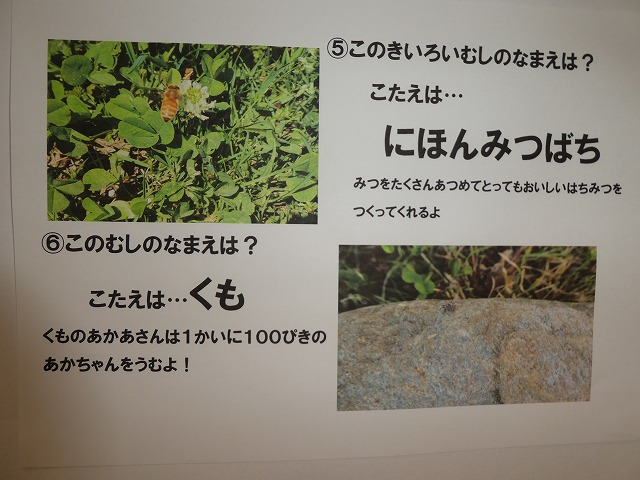 ⑤このきいろいむしのなまえは？
こたえは…
にほんみつばち
みつをたくさんあつめてとってもおいしいはちみつを
つくってくれるよ
⑥このむしのなまえは？
こたえは…くも
くものあかあさんは１かいに１００ぴきの
あかちゃんをうむよ！